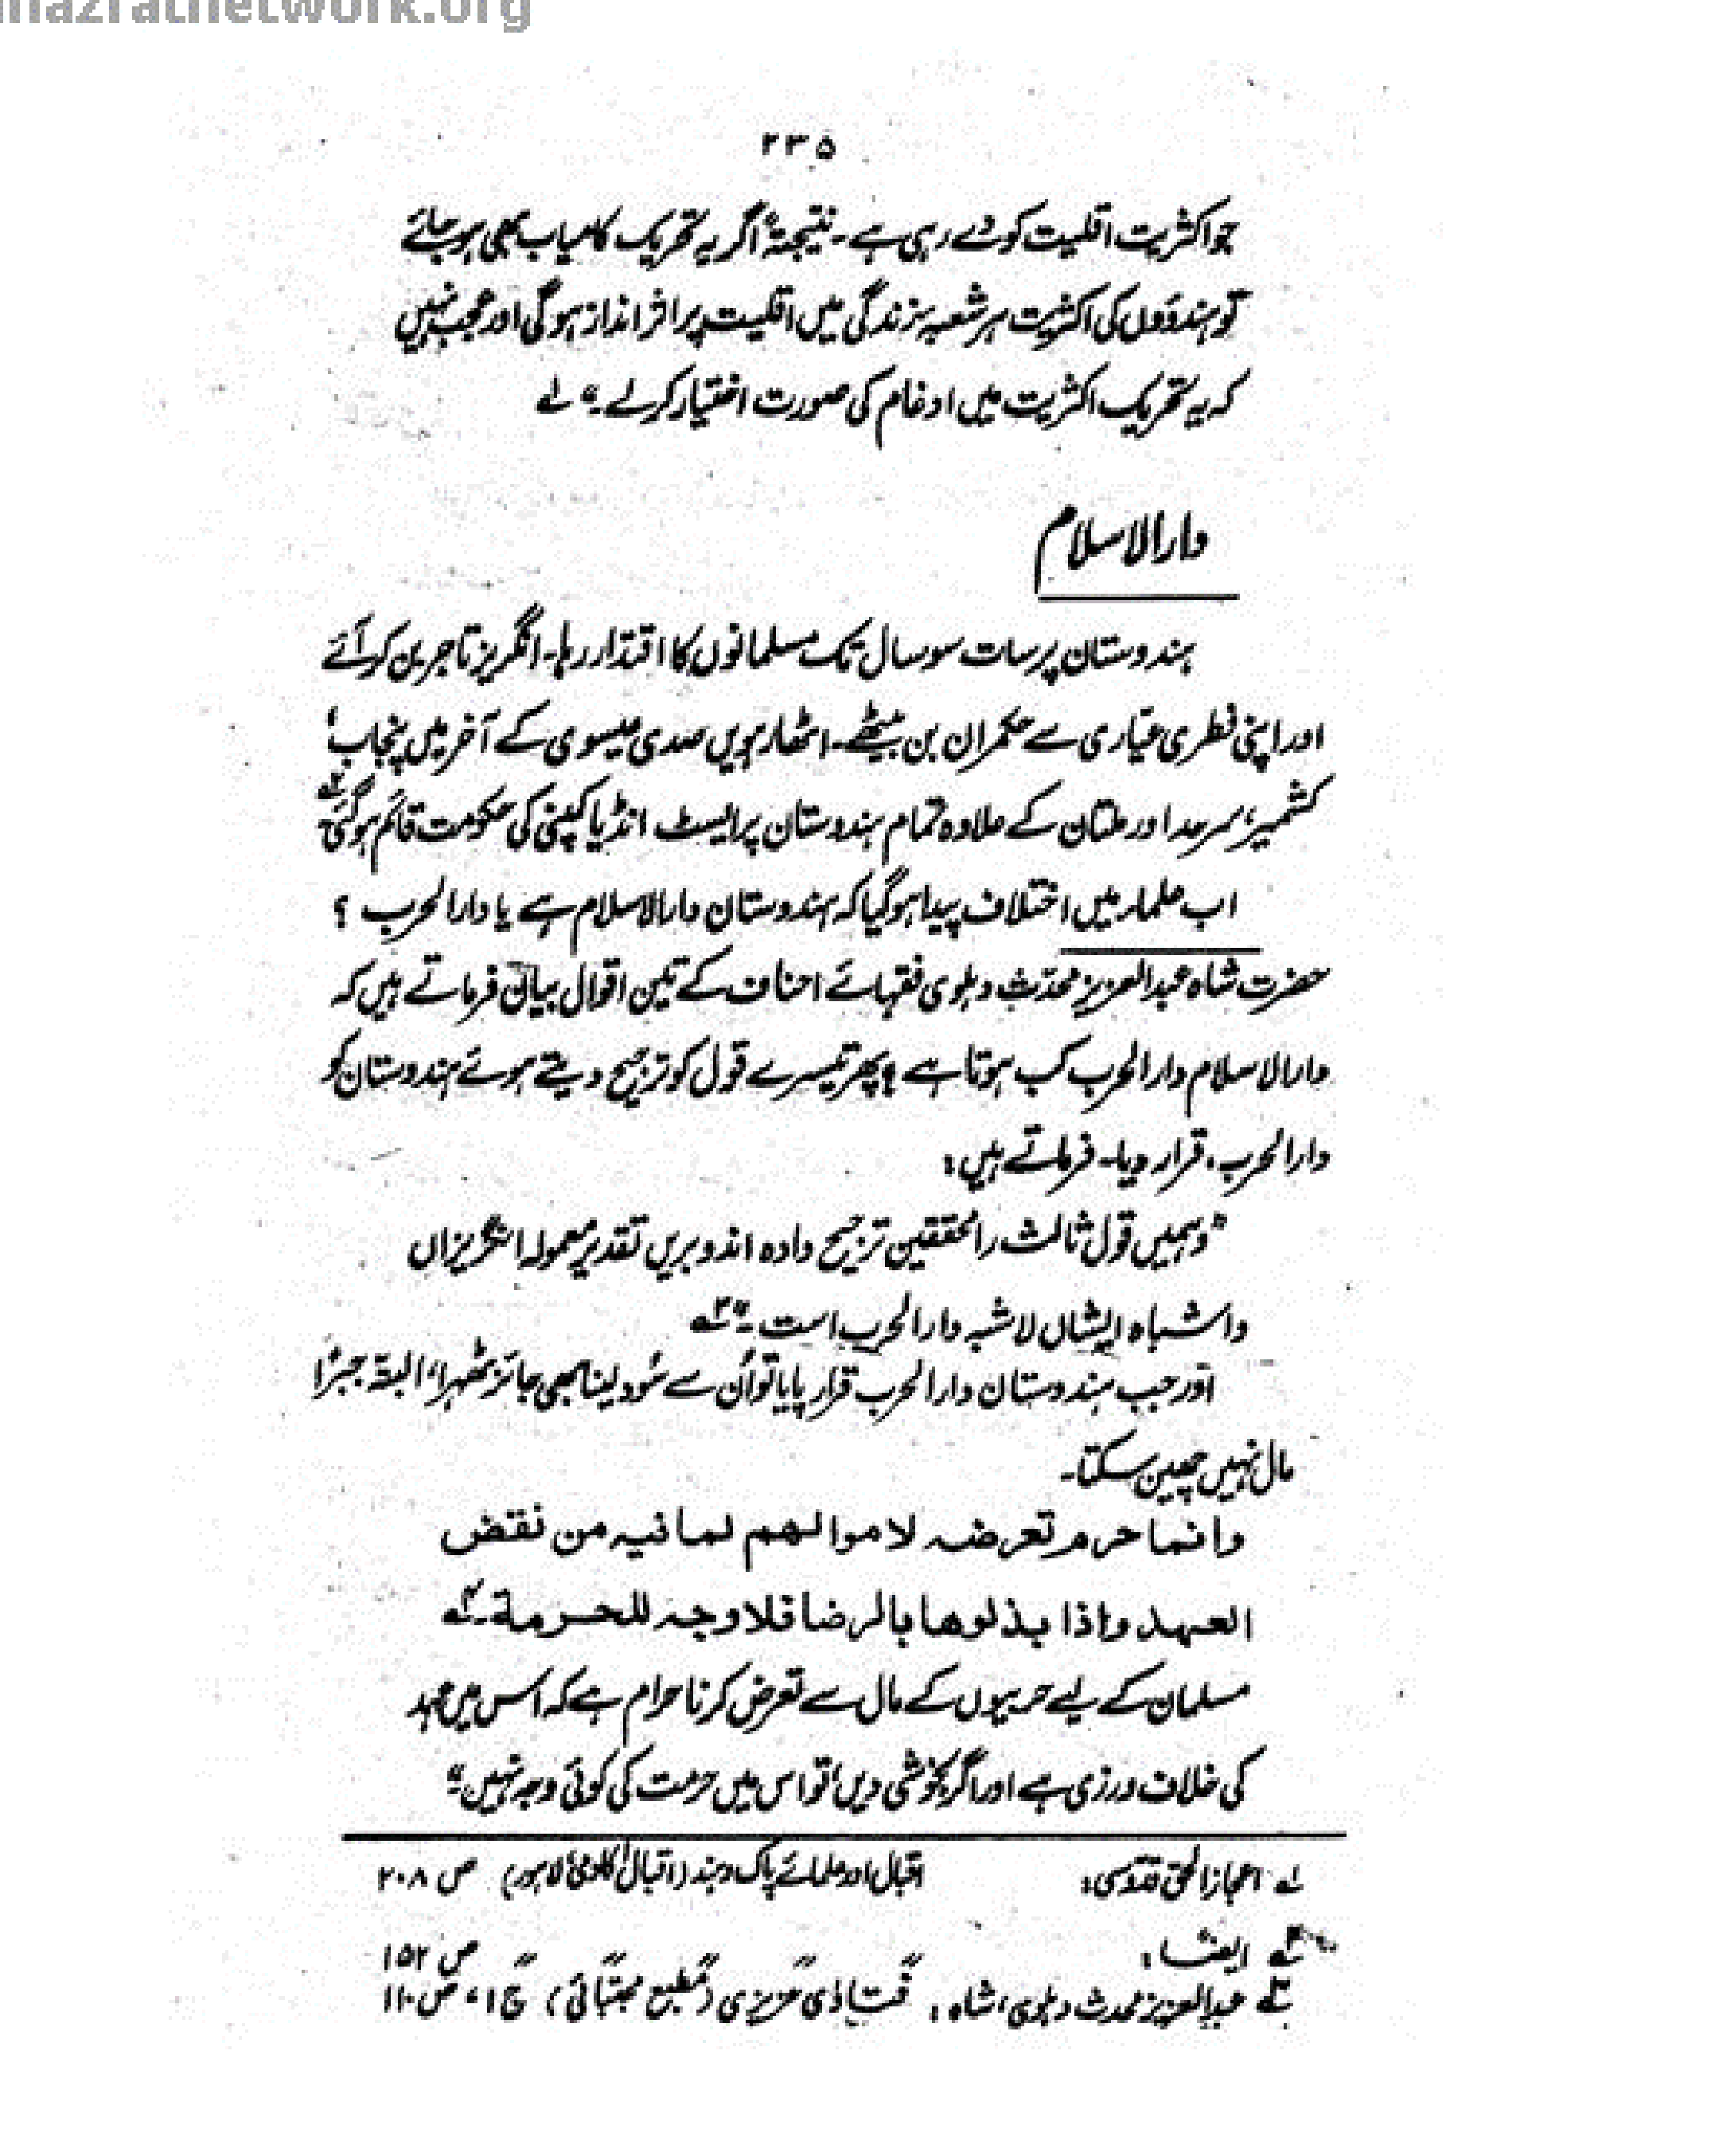 mazratnetwork.org
۲۳۵
جو اکثریت اقلیت کو دے رہی ہے۔ نتیجۃً اگر یہ تحریک کامیاب بھی ہو جائے
تو ہندوؤں کی اکثریت ہر شعبہ زندگی میں اقلیت پر اثر انداز ہوگی اور عجب نہیں
کہ یہ تحریک اکثریت میں ادغام کی صورت اختیار کرلے۔" لے
دارالاسلام
ہندوستان پر سات سو سال تک مسلمانوں کا اقتدار رہا۔ انگریز تاجر بن کر آئے
اور اپنی فطری عیّاری سے حکمران بن بیٹھے۔ اٹھارہویں صدی عیسوی کے آخر میں پنجاب،
کشمیر، سرحد اور ملتان کے علاوہ تمام ہندوستان پر ایسٹ انڈیا کمپنی کی حکومت قائم ہوگئی ۲ے
اب علماء میں اختلاف پیدا ہوگیا کہ ہندوستان دارالاسلام ہے یا دارالحرب ؟
حضرت شاہ عبدالعزیز محدّث دہلوی فقہائے احناف کے تین اقوال بیان فرماتے ہیں کہ
دارالاسلام دارالحرب کب ہوتا ہے ؟ پھر تیسرے قول کو ترجیح دیتے ہوئے ہندوستان کو
دارالحرب، قرار دیا۔ فرماتے ہیں:
"وہمیں قول ثالث را محققین ترجیح دادہ اند و بریں تقدیر معمولہ انگریزاں
واشباہ ایشاں لاشبہ دارالحرب است۔" ۳ے
اور جب ہندوستان دارالحرب قرار پایا تو اُن سے سُود لینا بھی جائز ٹھہرا، البتہ جبرًا
مال نہیں چھین سکتا۔
وانما حرم تعرضہ لاموالھم لمافیہ من نقض
العہد واذا بذلوھا بالرضا فلا وجہ للحرمۃ۔ ۴ے
مسلمان کے لیے حربیوں کے مال سے تعرض کرنا حرام ہے کہ اس میں عہد
کی خلاف ورزی ہے اور اگر بخوشی دیں تو اس میں حرمت کی کوئی وجہ نہیں"
لے اعجاز الحق قدوسی: اقبال اور علمائے پاک و ہند (اقبال اکادمی لاہور) ص ۲۰۸
۲ے ایضًا: ص ۱۵۲
۳ے عبدالعزیز محدث دہلوی، شاہ: فتاوٰی عزیزی (مطبع مجتبائی) ج ۱، ص ۱۱۰